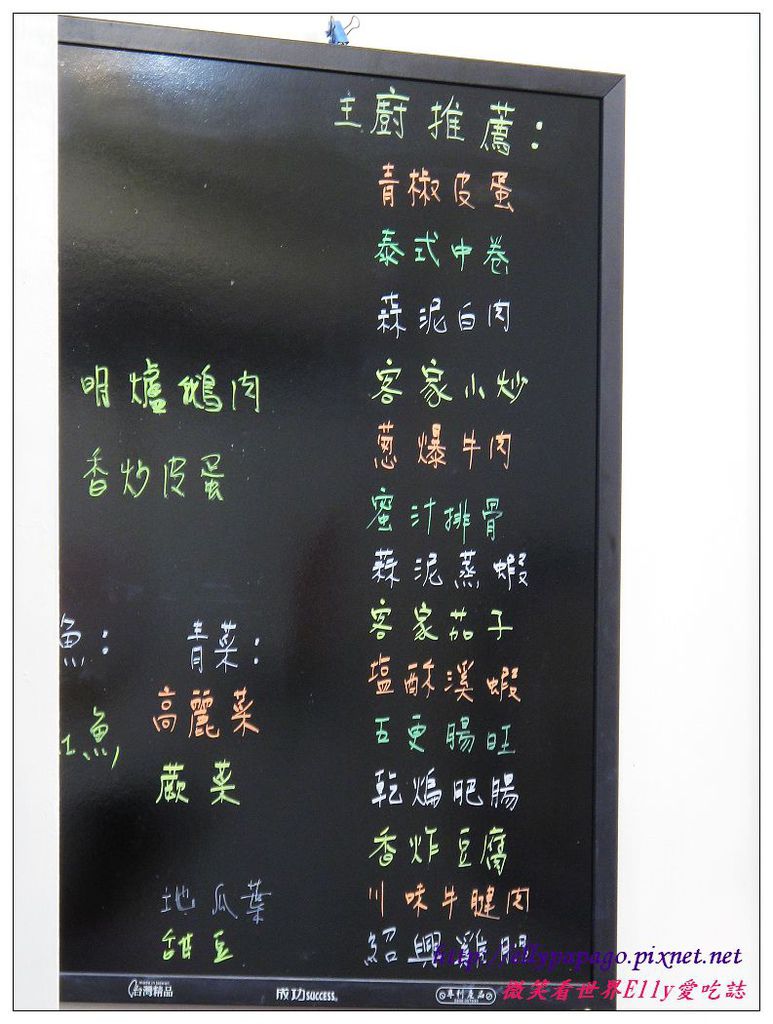 主廚推薦：
青椒皮蛋
泰式中卷
蒜泥白肉
客家小炒
蔥爆牛肉
蜜汁排骨
蒜泥蒸蝦
客家茄子
塩酥溪蝦
五更腸旺
乾煸肥腸
香炸豆腐
川味牛腱肉
紹興雞腿
明爐鵝肉
香炒皮蛋
魚：
魚
青菜：
高麗菜
蕨菜
地瓜葉
甜豆
MADE IN TAIWAN
台灣精品
成功 SUCCESS.
專利產品
http://ellypapago.pixnet.net
微笑看世界Elly愛吃誌